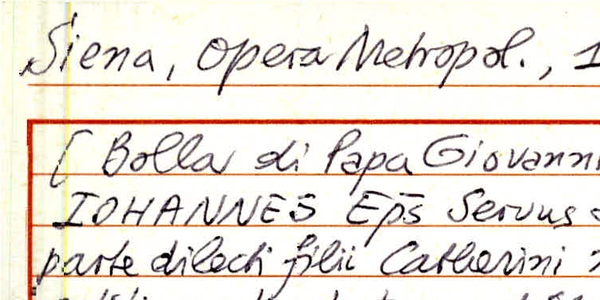 Siena, Opera Metropol., 1
[ Bolla di Papa Giovanni
IOHANNES Ep̄s Servus
parte dilecti filii Catherini